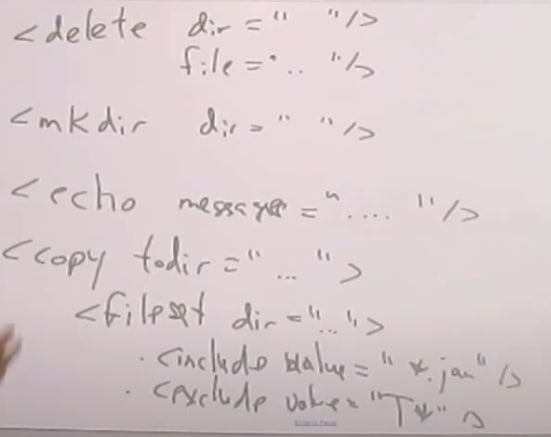 <delete dir=" "/>
file=".. "/>
<mkdir dir=" "/>
<echo message=".... "/>
<copy todir="... ">
<fileset dir="...">
. <include value=" *.jar" />
. <exclude value="T*" />